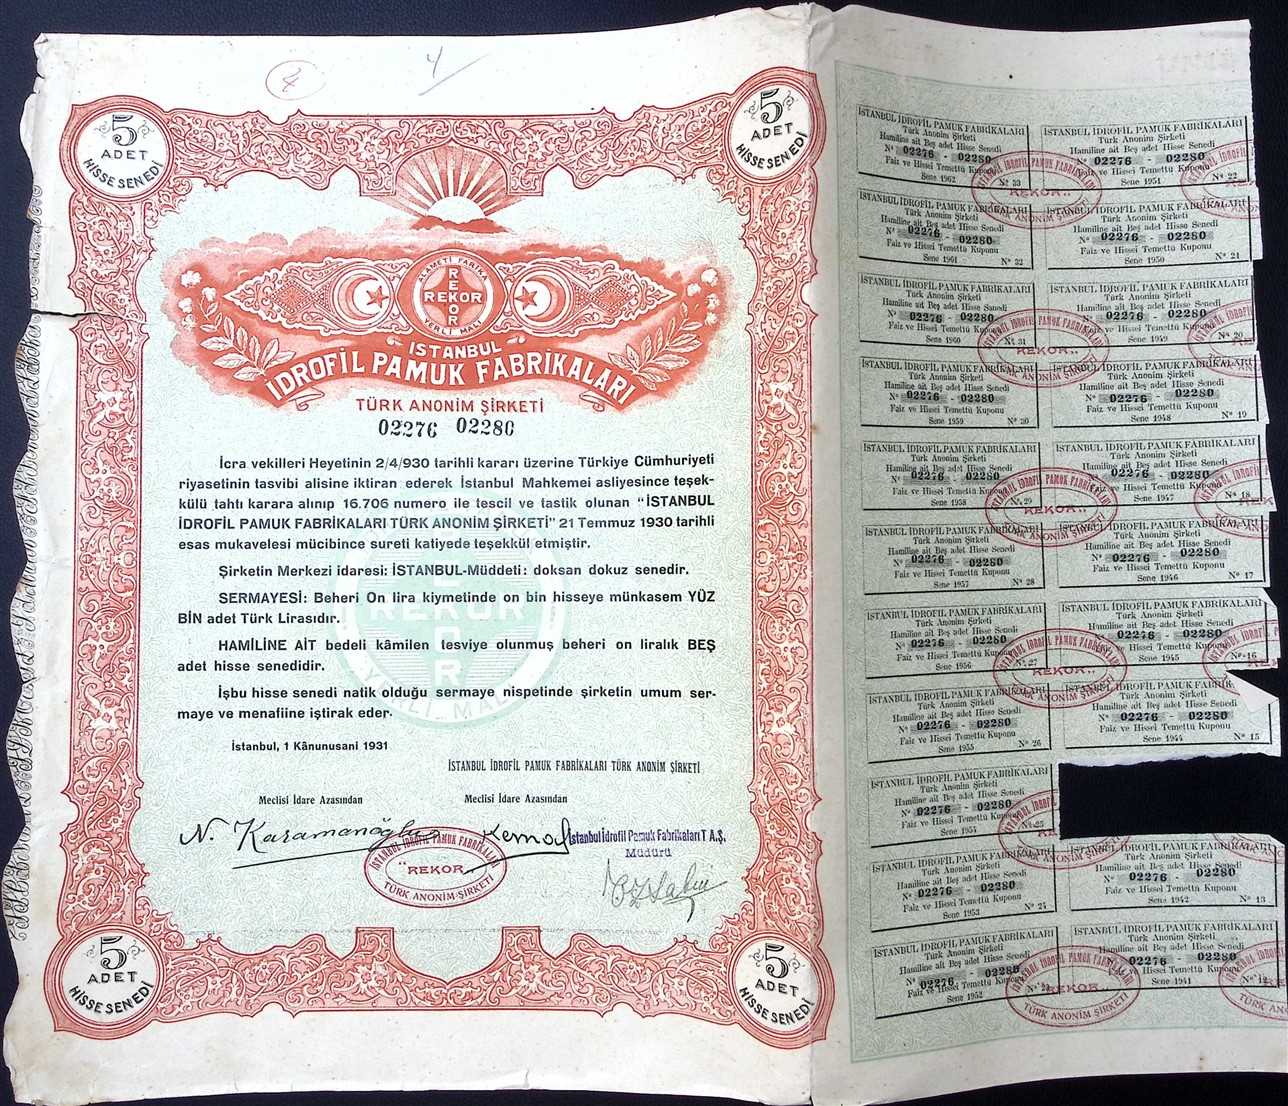 4
4
5
ADET
HİSSE SENEDİ
5
ADET
HİSSE SENEDİ
ALAMETİ FARİKA
REKOR
REKOR
YERLİ MALI
İSTANBUL
İDROFİL PAMUK FABRİKALARI
TÜRK ANONİM ŞİRKETİ
02276 02280
İcra vekilleri Heyetinin 2/4/930 tarihli kararı üzerine Türkiye Cümhuriyeti
riyasetinin tasvibi alisine iktiran ederek İstanbul Mahkemei asliyesince teşek-
külü tahtı karara alınıp 16.706 numero ile tescil ve tastik olunan "İSTANBUL
İDROFİL PAMUK FABRİKALARI TÜRK ANONİM ŞİRKETİ" 21 Temmuz 1930 tarihli
esas mukavelesi mücibince sureti katiyede teşekkül etmiştir.
Şirketin Merkezi idaresi: İSTANBUL-Müddeti: doksan dokuz senedir.
SERMAYESİ: Beheri On lira kiymetinde on bin hisseye münkasem YÜZ
BİN adet Türk Lirasıdır.
HAMİLİNE AİT bedeli kâmilen tesviye olunmuş beheri on liralık BEŞ
adet hisse senedidir.
İşbu hisse senedi natik olduğu sermaye nispetinde şirketin umum ser-
maye ve menafiine iştirak eder.
İstanbul, 1 Kânunusani 1931
İSTANBUL İDROFİL PAMUK FABRİKALARI TÜRK ANONİM ŞİRKETİ
Meclisi İdare Azasından Meclisi İdare Azasından
N. Karamanoğlu Kemal
İstanbul İdrofil Pamuk Fabrikaları T.A.Ş.
Müdürü
İSTANBUL İDROFİL PAMUK FABRİKALARI
"REKOR"
TÜRK ANONİM ŞİRKETİ
5
ADET
HİSSE SENEDİ
5
ADET
HİSSE SENEDİ
İSTANBUL İDROFİL PAMUK FABRİKALARI
Türk Anonim Şirketi
Hamiline ait Beş adet Hisse Senedi
Nº 02276 - 02280
Faiz ve Hissei Temettü Kuponu
Sene 1962 Nº 33
İSTANBUL İDROFİL PAMUK FABRİKALARI
Türk Anonim Şirketi
Hamiline ait Beş adet Hisse Senedi
Nº 02276 - 02280
Faiz ve Hissei Temettü Kuponu
Sene 1951 Nº 22
İSTANBUL İDROFİL PAMUK FABRİKALARI
Türk Anonim Şirketi
Hamiline ait Beş adet Hisse Senedi
Nº 02276 - 02280
Faiz ve Hissei Temettü Kuponu
Sene 1961 Nº 32
İSTANBUL İDROFİL PAMUK FABRİKALARI
Türk Anonim Şirketi
Hamiline ait Beş adet Hisse Senedi
Nº 02276 - 02280
Faiz ve Hissei Temettü Kuponu
Sene 1950 Nº 21
İSTANBUL İDROFİL PAMUK FABRİKALARI
Türk Anonim Şirketi
Hamiline ait Beş adet Hisse Senedi
Nº 02276 - 02280
Faiz ve Hissei Temettü Kuponu
Sene 1960 Nº 31
İSTANBUL İDROFİL PAMUK FABRİKALARI
Türk Anonim Şirketi
Hamiline ait Beş adet Hisse Senedi
Nº 02276 - 02280
Faiz ve Hissei Temettü Kuponu
Sene 1949 Nº 20
İSTANBUL İDROFİL PAMUK FABRİKALARI
Türk Anonim Şirketi
Hamiline ait Beş adet Hisse Senedi
Nº 02276 - 02280
Faiz ve Hissei Temettü Kuponu
Sene 1959 Nº 30
İSTANBUL İDROFİL PAMUK FABRİKALARI
Türk Anonim Şirketi
Hamiline ait Beş adet Hisse Senedi
Nº 02276 - 02280
Faiz ve Hissei Temettü Kuponu
Sene 1948 Nº 19
İSTANBUL İDROFİL PAMUK FABRİKALARI
Türk Anonim Şirketi
Hamiline ait Beş adet Hisse Senedi
Nº 02276 - 02280
Faiz ve Hissei Temettü Kuponu
Sene 1958 Nº 29
İSTANBUL İDROFİL PAMUK FABRİKALARI
Türk Anonim Şirketi
Hamiline ait Beş adet Hisse Senedi
Nº 02276 - 02280
Faiz ve Hissei Temettü Kuponu
Sene 1947 Nº 18
İSTANBUL İDROFİL PAMUK FABRİKALARI
Türk Anonim Şirketi
Hamiline ait Beş adet Hisse Senedi
Nº 02276 - 02280
Faiz ve Hissei Temettü Kuponu
Sene 1957 Nº 28
İSTANBUL İDROFİL PAMUK FABRİKALARI
Türk Anonim Şirketi
Hamiline ait Beş adet Hisse Senedi
Nº 02276 - 02280
Faiz ve Hissei Temettü Kuponu
Sene 1946 Nº 17
İSTANBUL İDROFİL PAMUK FABRİKALARI
Türk Anonim Şirketi
Hamiline ait Beş adet Hisse Senedi
Nº 02276 - 02280
Faiz ve Hissei Temettü Kuponu
Sene 1956 Nº 27
İSTANBUL İDROFİL PAMUK FABRİKALARI
Türk Anonim Şirketi
Hamiline ait Beş adet Hisse Senedi
Nº 02276 - 02280
Faiz ve Hissei Temettü Kuponu
Sene 1945 Nº 16
İSTANBUL İDROFİL PAMUK FABRİKALARI
Türk Anonim Şirketi
Hamiline ait Beş adet Hisse Senedi
Nº 02276 - 02280
Faiz ve Hissei Temettü Kuponu
Sene 1955 Nº 26
İSTANBUL İDROFİL PAMUK FABRİK
Türk Anonim Şirketi
Hamiline ait Beş adet Hisse Senedi
Nº 02276 - 02280
Faiz ve Hissei Temettü Kuponu
Sene 1944 Nº 15
İSTANBUL İDROFİL PAMUK FABRİKALARI
Türk Anonim Şirketi
Hamiline ait Beş adet Hisse Senedi
Nº 02276 - 02280
Faiz ve Hissei Temettü Kuponu
Sene 1954 Nº 25
İSTANBUL İDROFİL PAMUK FABRİKALARI
Türk Anonim Şirketi
Hamiline ait Beş adet Hisse Senedi
Nº 02276 - 02280
Faiz ve Hissei Temettü Kuponu
Sene 1953 Nº 24
İSTANBUL İDROFİL PAMUK FABRİKALARI
Türk Anonim Şirketi
Hamiline ait Beş adet Hisse Senedi
Nº 02276 - 02280
Faiz ve Hissei Temettü Kuponu
Sene 1942 Nº 13
İSTANBUL İDROFİL PAMUK FABRİKALARI
Türk Anonim Şirketi
Hamiline ait Beş adet Hisse Senedi
Nº 02276 - 02280
Faiz ve Hissei Temettü Kuponu
Sene 1952 Nº 23
İSTANBUL İDROFİL PAMUK FABRİKALARI
Türk Anonim Şirketi
Hamiline ait Beş adet Hisse Senedi
Nº 02276 - 02280
Faiz ve Hissei Temettü Kuponu
Sene 1941 Nº 12